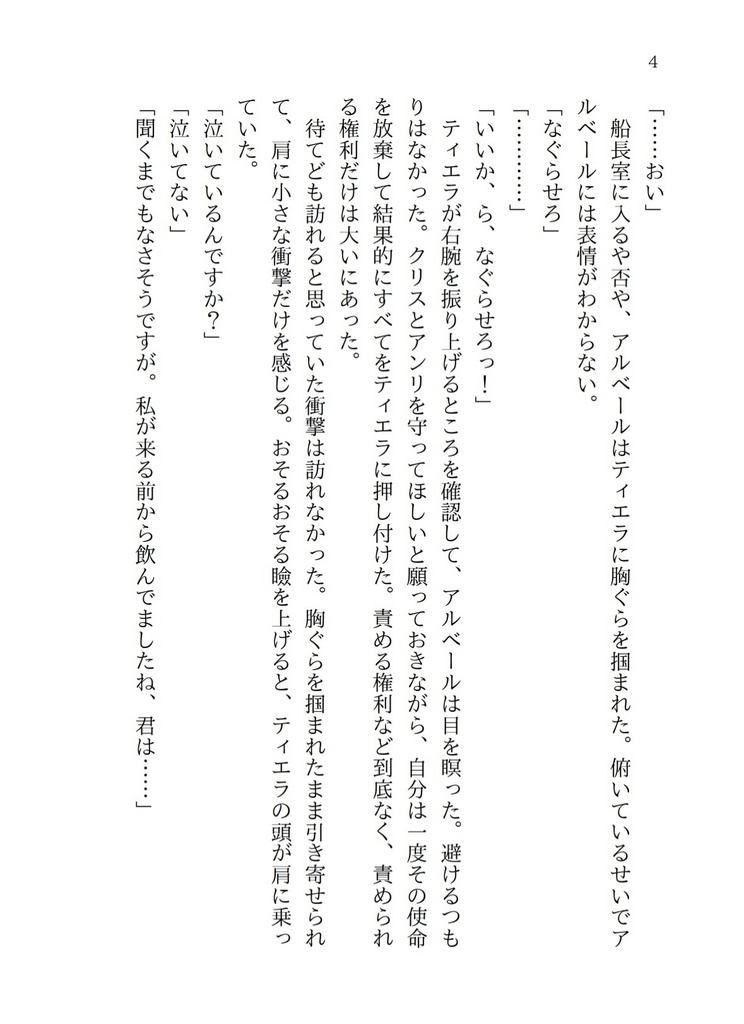 4
「……おい」
船長室に入るや否や、アルベールはティエラに胸ぐらを掴まれた。俯いているせいでア
ルベールには表情がわからない。
「なぐらせろ」
「…………」
「いいか、ら、なぐらせろっ！」
ティエラが右腕を振り上げるところを確認して、アルベールは目を瞑った。避けるつも
りはなかった。クリスとアンリを守ってほしいと願っておきながら、自分は一度その使命
を放棄して結果的にすべてをティエラに押し付けた。責める権利など到底なく、責められ
る権利だけは大いにあった。
待てども訪れると思っていた衝撃は訪れなかった。胸ぐらを掴まれたまま引き寄せられ
て、肩に小さな衝撃だけを感じる。おそるおそる瞼を上げると、ティエラの頭が肩に乗っ
ていた。
「泣いているんですか？」
「泣いてない」
「聞くまでもなさそうですが。私が来る前から飲んでましたね、君は……」